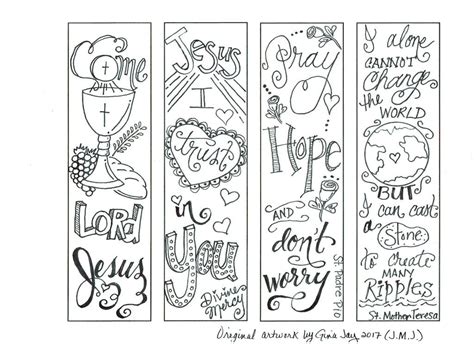 Come
LORD
Jesus
Jesus
I
trust
in
You
Divine
Mercy
Pray
Hope
AND
don't
worry
St. Padre Pio
I alone
CANNOT
Change
the
WORLD
BUT
I can cast
a
Stone
to
Create
MANY
Ripples
St. Mother Teresa
Original artwork by Gina Jay 2017 (J.M.J.)